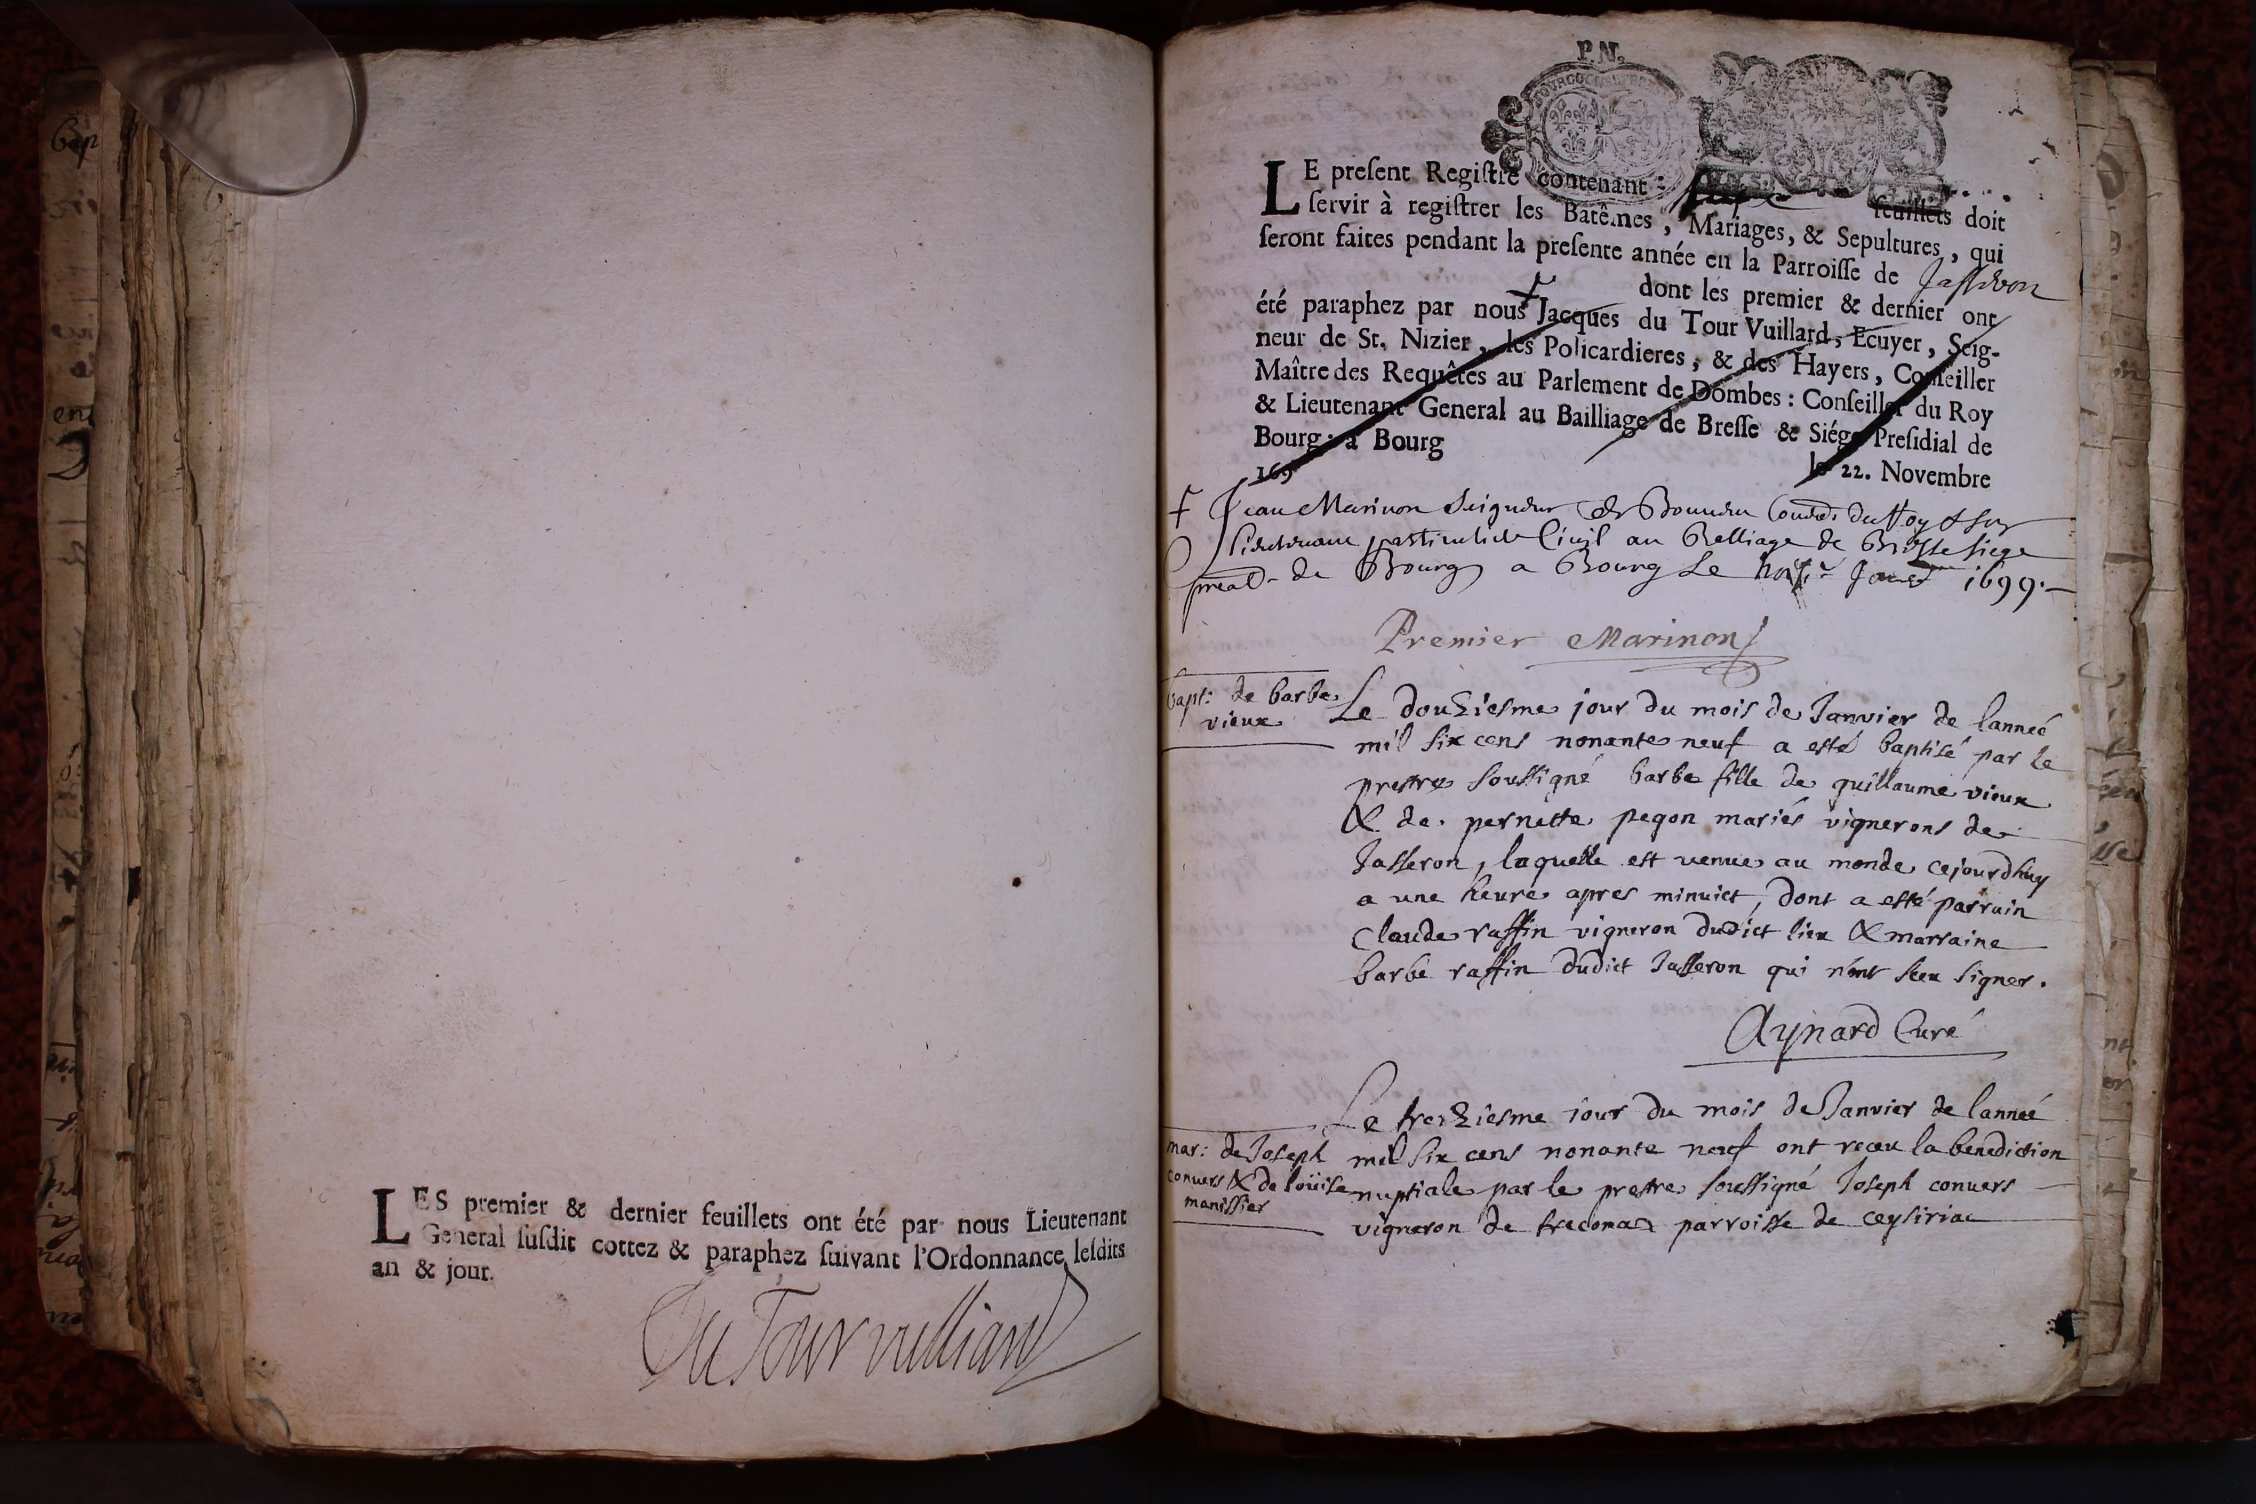 LES premier & dernier feuillets ont été par nous Lieutenant
General suſdit cottez & paraphez ſuivant l'Ordonnance leſdits
an & jour.
Du Tour vulliard
P.N.
LE preſent Regiſtre contenant feuillets doit
ſervir à regiſtrer les Batêmes, Mariages, & Sepultures, qui
ſeront faites pendant la preſente année en la Parroiſſe de Jasseron
dont les premier & dernier ont
été paraphez par nous Jacques du Tour Vuillard, Ecuyer, Seig-
neur de St. Nizier, les Policardieres, & des Hayers, Conſeiller
Maître des Requêtes au Parlement de Dombes: Conſeiller du Roy
& Lieutenant General au Bailliage de Breſſe & Siége Preſidial de
Bourg: à Bourg le 22. Novembre
169
Jean Marinon Seigneur de du Roy
lieutenant particulier Civil au Belliage de Bresse siege
de Bourg a Bourg Le 1699.
Premier Marinon
bapt: de barbe
vieux
Le douziesme jour du mois de Janvier de lanneé
mil six cens nonante neuf a esté baptisé par le
prestre soussigné barbe fille de guillaume vieux
& de pernette pegon mariés vignerons de
Jasseron, laquelle est venue au monde cejourdhuy
a une heure apres minuict, dont a esté parrain
Claude raffin vigneron dudict lieu & marraine
barbe raffin dudict Jasseron qui n'ont sceu signer.
Aynard Curé
mar: de Joseph
convers & de loüise
manissier
Le treiziesme jour du mois de Janvier de lanneé
mil six cens nonante neuf ont receu la benediction
nuptiale par le prestre soussigné Joseph convers
vigneron de treconas parroisse de ceysiriac